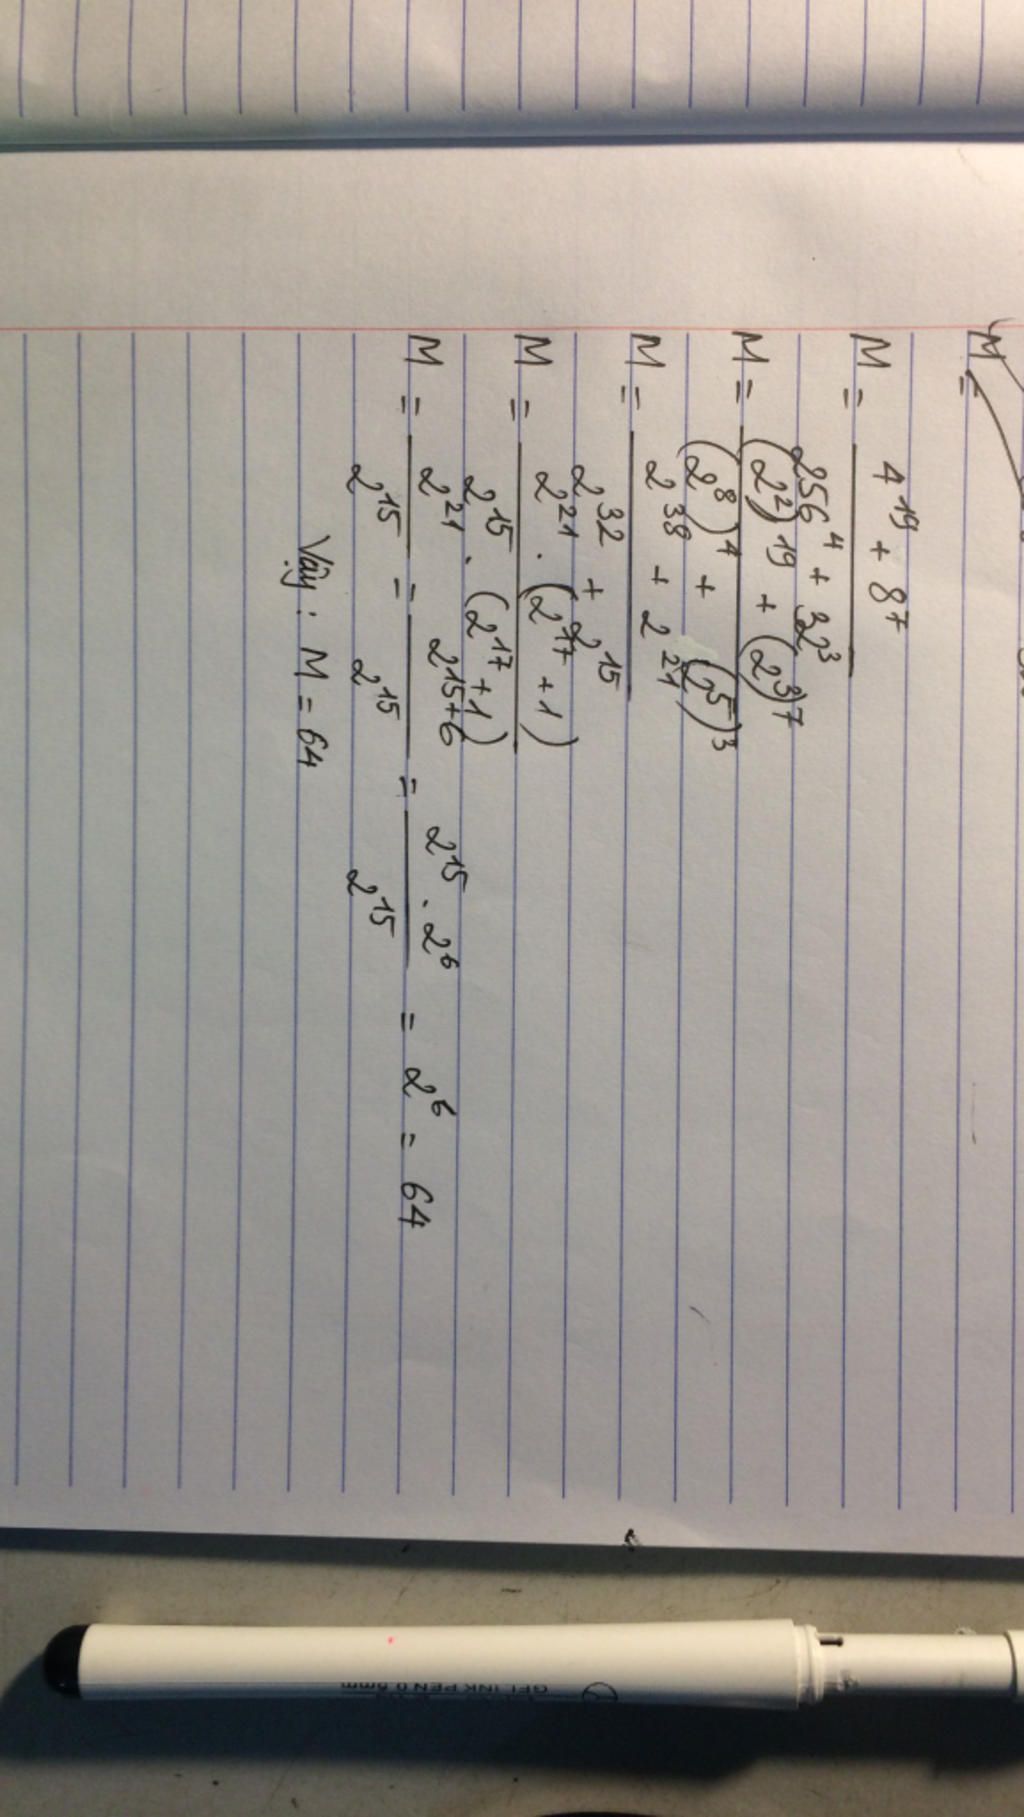 M =
M = (4^19 + 8^7) / (256^4 + 32^3)
M = ((2^2)^19 + (2^3)^7) / ((2^8)^4 + (2^5)^3)
M = (2^38 + 2^21) / (2^32 + 2^15)
M = (2^21 . (2^17 + 1)) / (2^15 . (2^17 + 1))
M = 2^21 / 2^15 = 2^(15+6) / 2^15 = (2^15 . 2^6) / 2^15 = 2^6 = 64
Vậy : M = 64
GEL INK PEN